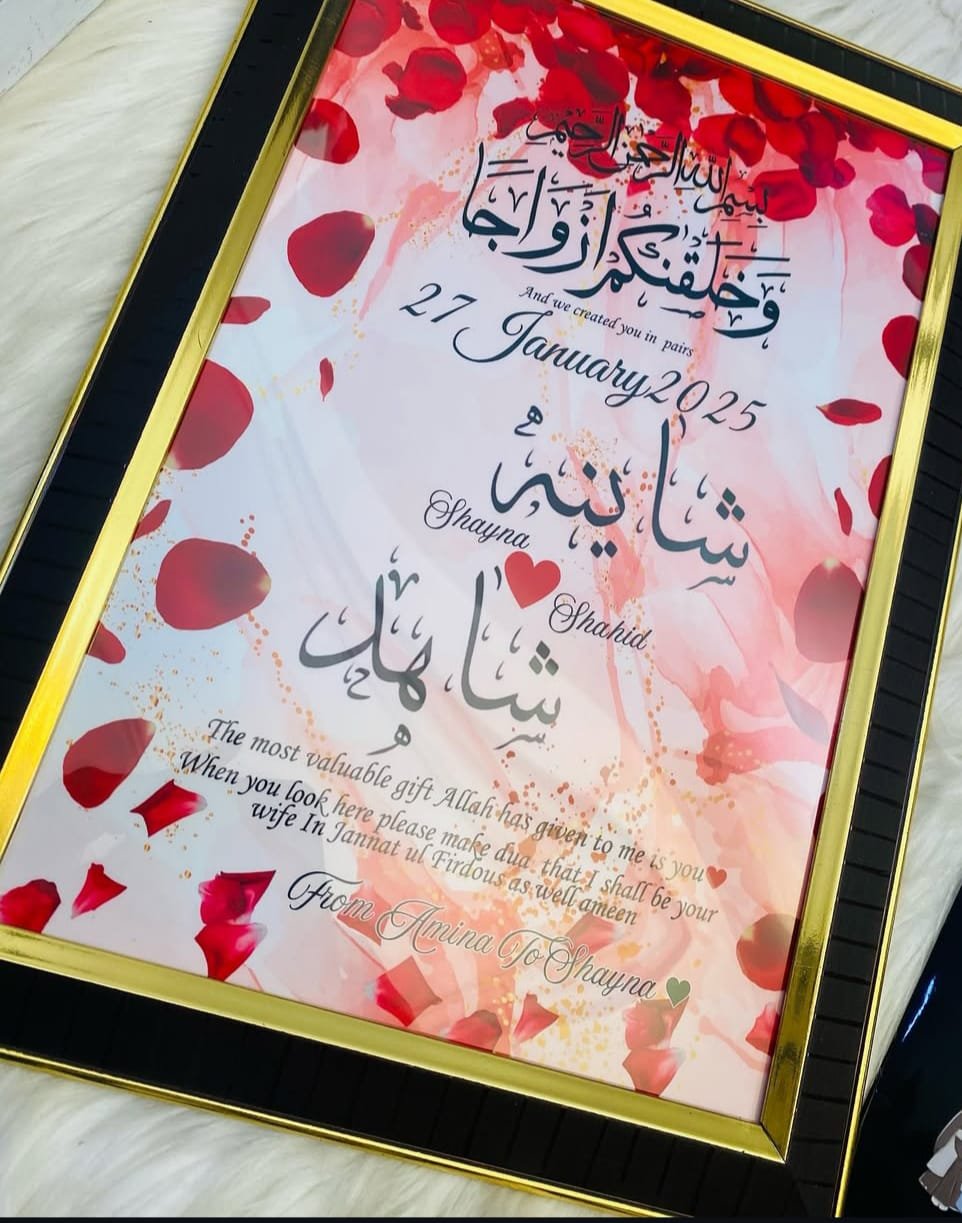 بِسْمِ اللهِ الرَّحْمٰنِ الرَّحِيْمِ
وَخَلَقْنٰكُمْ اَزْوَاجًا
And we created you in pairs
27 January 2025
شاینہ
Shayna
Shahid
شاہد
The most valuable gift Allah has given to me is you
When you look here please make dua that I shall be your
wife In Jannat ul Firdous as well ameen
From Amina To Shayna